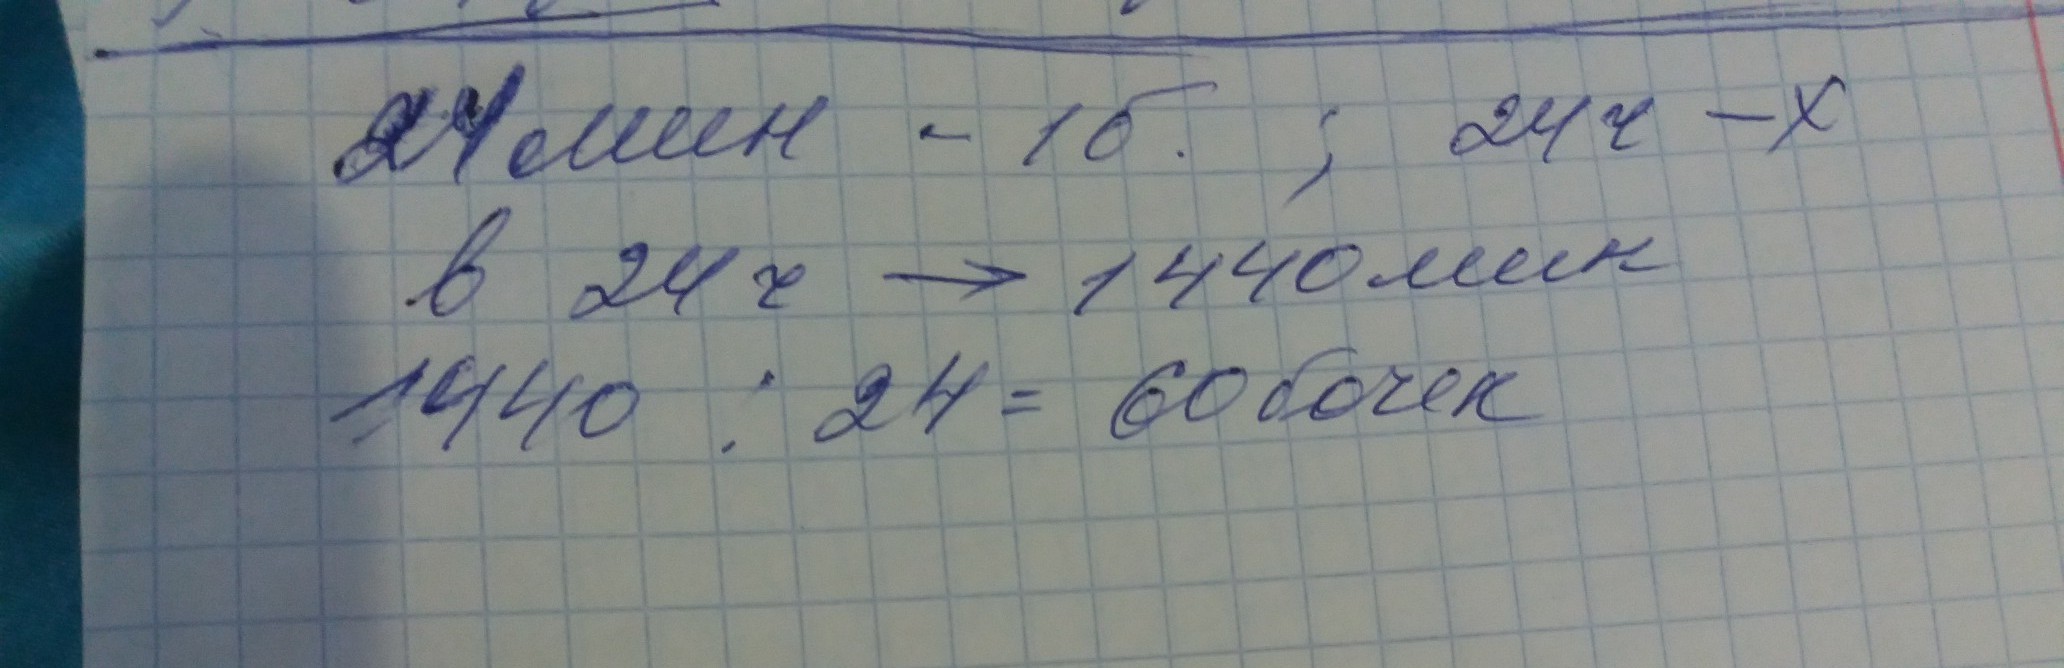 24мин - 1б. ; 24ч - х
в 24ч → 1440мин
1440 : 24 = 60бочек